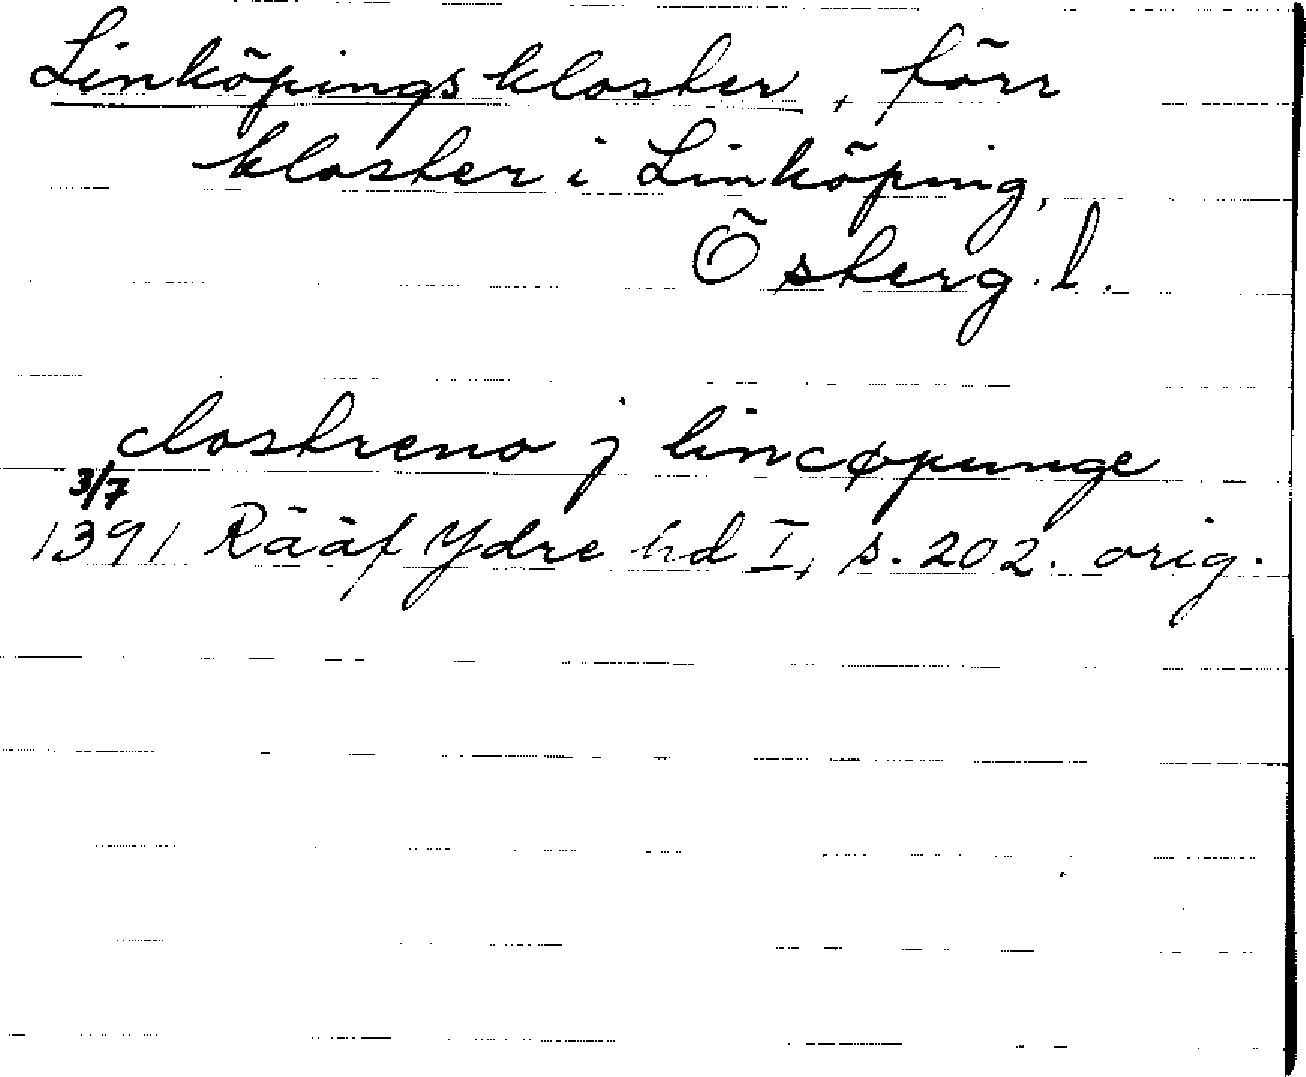 Linköpings kloster, förr
kloster i Linköping,
Österg.l.
clostreno j lincøpunge
3/7
1391 Rääf Ydre hd I, s. 202. orig.